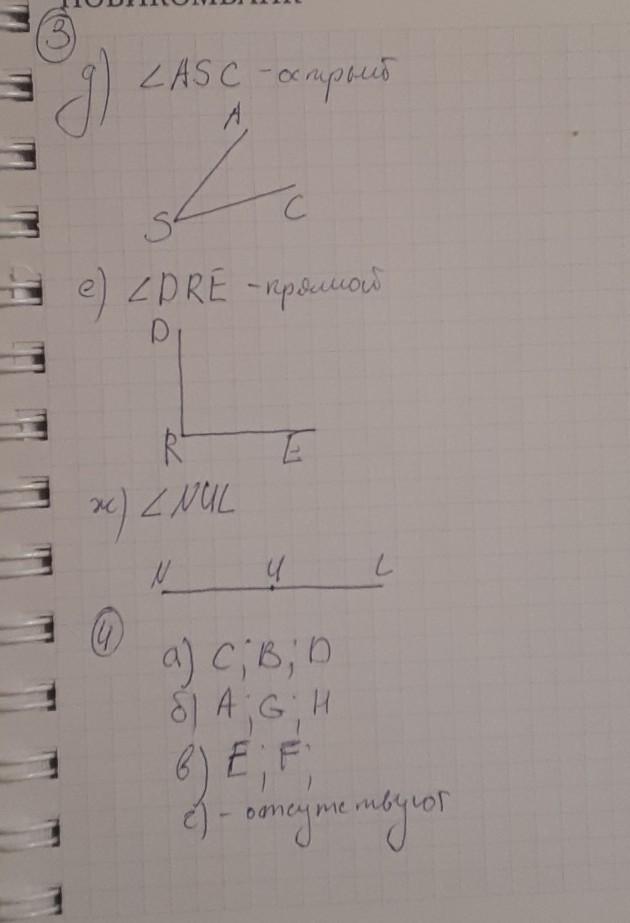 НОВИКОМБАНК
3
д) ∠ASC - острый
A
S C
е) ∠DRE - прямой
D
R E
ж) ∠NUL
N U L
4
а) C; B; D
б) A; G; H
в) E; F;
г) - отсутствуют